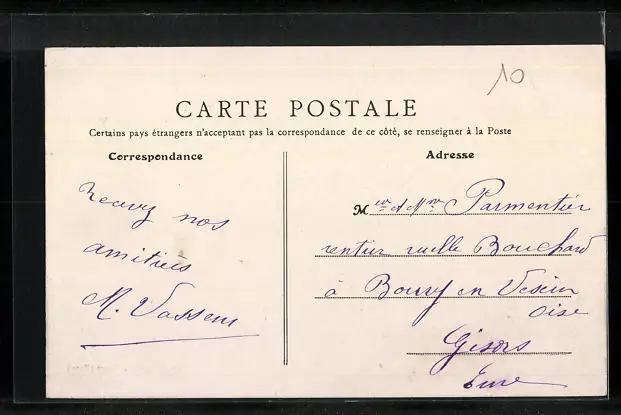 10
CARTE POSTALE
Certains pays étrangers n'acceptant pas la correspondance de ce côté, se renseigner à la Poste
Correspondance
Recevez nos
amitiés
M. Vasseur
Adresse
M eur & Mme Parmentier
rentier ruelle Bouchard
à Boury en Vexin
Oise
Gisors
Eure